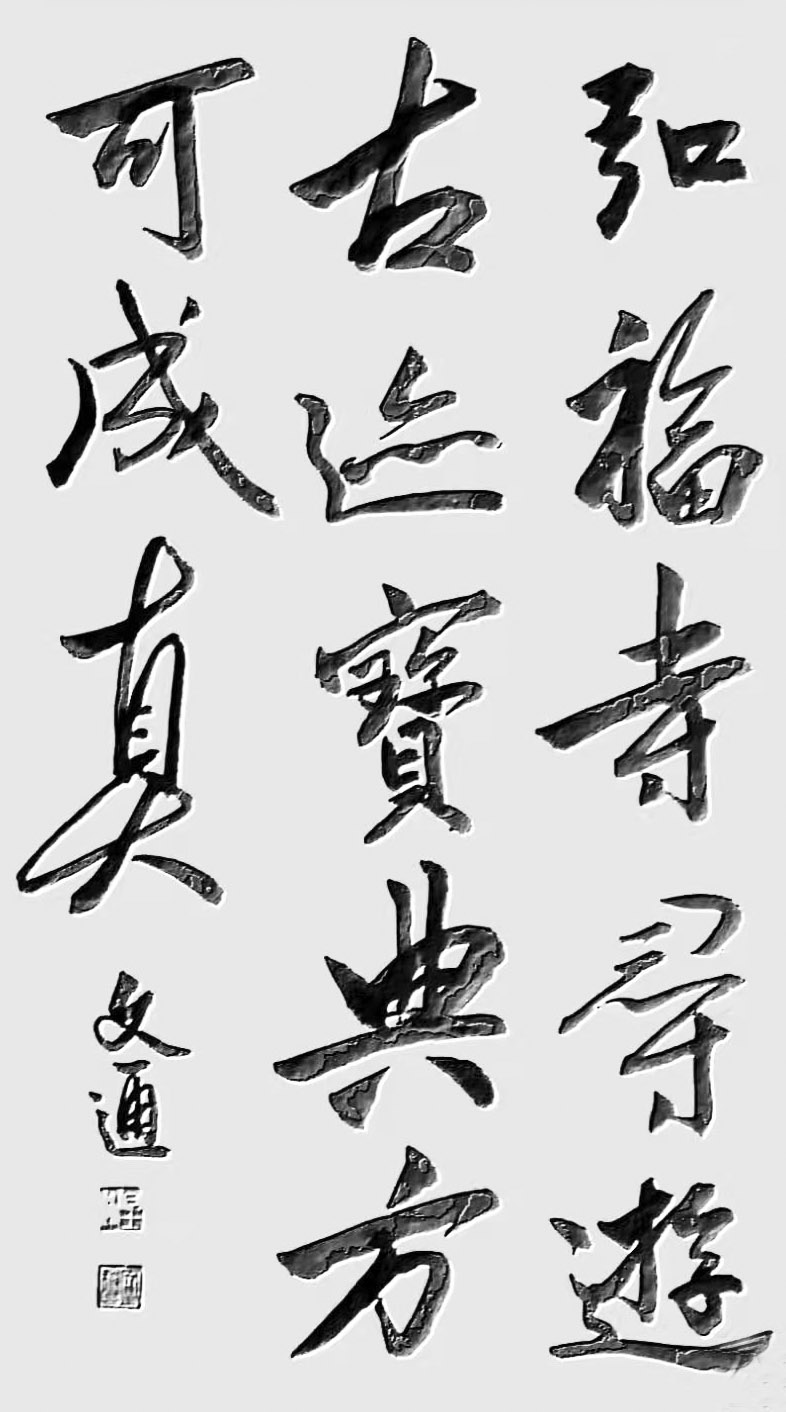 弘福寺尋遊
古迹寶典方
可成真
文通